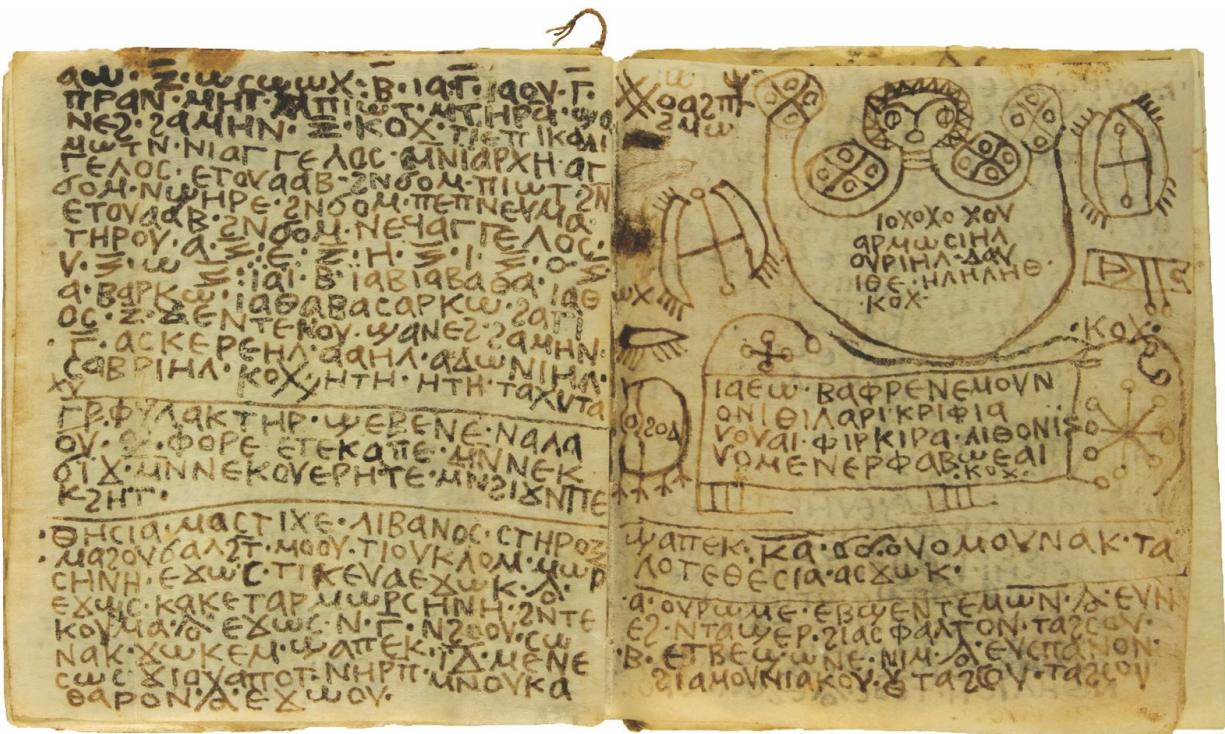 ⲁⲱ · ⲍ̅ · ⲱⲥⲱⲱⲭ · ⲃ̅ · ⲓⲁ · ⲅ̅ · ⲓⲁⲟⲩ · ⲅ̅ ·
ⲡⲣⲁⲛ · ⲙⲡⲓⲱⲧ
ⲛⲉϩ · ϩⲁⲙⲏⲛ · ⲕⲟⲭ · ϯⲉⲡⲓⲕⲁⲗⲓ
ⲙⲱⲧⲛ · ⲛⲓⲁⲅⲅⲉⲗⲟⲥ · ⲙⲛⲓⲁⲣⲭⲏⲁⲅ
ⲅⲉⲗⲟⲥ · ⲉⲧⲟⲩⲁⲁⲃ · ϩⲛϭⲟⲙ · ⲡⲓⲱⲧ · ϩⲛ
ϭⲟⲙ · ⲛϣⲏⲣⲉ · ϩⲛϭⲟⲙ · ⲡⲉⲡⲛⲉⲩⲙⲁ
ⲉⲧⲟⲩⲁⲁⲃ · ϩⲛϭⲟⲙ · ⲛⲉϥⲁⲅⲅⲉⲗⲟⲥ ·
ⲧⲏⲣⲟⲩ · ⲁ · ⲉ · ⲏ · ⲓ · ⲟ ·
ⲩ · ⲱ · ⲓⲁⲓ · ⲃ · ⲓⲁⲃⲓⲁⲃⲁⲑⲁ · ⲓⲁⲑ
ⲁ · ⲃⲁⲣⲕⲱ · ⲓⲁⲑⲁⲃⲁⲥⲁⲣⲕⲱ ·
ⲟⲥ · ⲍ · ϫⲉⲛⲧⲉⲕⲟⲩ · ϣⲁⲛⲉϩ · ϩⲁⲙⲏⲛ ·
ⲅ̅ · ⲁⲥⲕⲉⲣⲉⲏⲗ · ⲁⲁⲏⲗ · ⲁⲇⲱⲛⲓⲏⲗ ·
ⲥⲁⲃⲣⲓⲏⲗ · ⲕⲟⲭ · ⲏⲧⲏ · ⲏⲧⲏ · ⲧⲁⲭⲩⲧⲁ
ⲭⲩ
ⲅⲣ · ⲫⲩⲗⲁⲕⲧⲏⲣ · ϣⲉⲃⲉⲛⲉ · ⲛⲁⲗⲁ
ⲟⲩ · ⲫⲟⲣⲉ ⲉⲧⲉⲕⲁⲡⲉ · ⲙⲛⲛⲉⲕ
ϭⲓϫ · ⲙⲛⲛⲉⲕⲟⲩⲉⲣⲏⲧⲉ · ⲙⲛϩⲓϫⲛⲡⲉ
ⲕϩⲏⲧ ·
ⲑⲏⲥⲓⲁ · ⲙⲁⲥⲧⲓⲭⲉ · ⲗⲓⲃⲁⲛⲟⲥ · ⲥⲧⲏⲣⲟⲝ
ⲙⲁϩⲟⲩϭⲁⲗϩⲧ · ⲙⲟⲟⲩ · ϯⲟⲩⲕⲗⲟⲙ · ⲙⲱⲣ
ⲥⲏⲛⲏ · ⲉϫⲱⲥ
ⲉϫⲱⲥ · ⲕⲁⲕⲉⲧⲁⲣ ⲙⲱⲣⲥⲏⲛⲏ · ϩⲛⲧⲉ
ⲕⲟⲩⲙⲁ · ⲗ · ⲉϫⲱⲥ · ⲛ · ⲅ̅ · ⲛϩⲟⲟⲩ · ⲥⲱ
ⲛⲁⲕ · ϫⲱⲕⲉⲙ · ϣⲁⲡⲉⲕ · ⲓⲇ · ⲙⲉⲛⲉ
ⲥⲱⲥ · ϫⲓⲟⲩⲁⲡⲟⲧ · ⲛⲏⲣⲡ · ⲙⲛⲟⲩⲕⲁ
ⲑⲁⲣⲟⲛ · ⲗ · ⲉϫⲱⲟⲩ ·
ⲓⲟⲭⲟⲭⲟ ⲭⲟⲩ
ⲁⲣⲙⲱⲥⲓⲏⲗ
ⲟⲩⲣⲓⲏⲗ · ⲇⲁⲩ
ⲓⲑⲉ · ⲏⲗⲏⲗⲏⲑ ·
ⲕⲟⲭ ·
· ⲕⲟⲭ ·
ⲓⲁⲉⲱ · ⲃⲁⲫⲣⲉⲛⲉⲙⲟⲩⲛ
ⲟⲛⲓⲑⲓⲗⲁⲣⲓⲕⲣⲓⲫⲓⲁ
ⲩⲟⲩⲁⲓ · ⲫⲓⲣⲕⲓⲣⲁ · ⲗⲓⲑⲟⲛⲓ
ⲩⲟⲙⲉⲛⲉⲣⲫⲁⲃⲱⲉⲁⲓ
· ⲕⲟⲭ ·
ϣⲁⲡⲉⲕ · ⲕⲁ · ϭⲟ · ⲟⲩⲟⲙⲟⲩ ⲛⲁⲕ · ⲧⲁ
ⲗⲟⲧⲉⲑⲉⲥⲓⲁ · ⲁⲥϫⲱⲕ ·
· ⲁ · ⲟⲩⲣⲱⲙⲉ · ⲉⲃϣⲉⲛⲧⲉⲙⲱⲛ · ⲗ · ⲉⲩⲛ
ⲉϩ · ⲛⲧⲁϣⲉⲣ · ϩⲓⲁⲥⲫⲁⲗⲧⲟⲛ · ⲧⲁϩⲥⲟⲩ ·
· ⲃ · ⲉⲧⲃⲉϣⲱⲛⲉ · ⲛⲓⲙ · ⲗ · ⲉⲩⲥⲡⲁⲛⲟⲛ ·
ϩⲓⲁⲙⲟⲩⲛⲓⲁⲕⲟⲩ · ⲧⲁϩⲥⲟⲩ · ⲧⲁϩⲥⲟⲩ